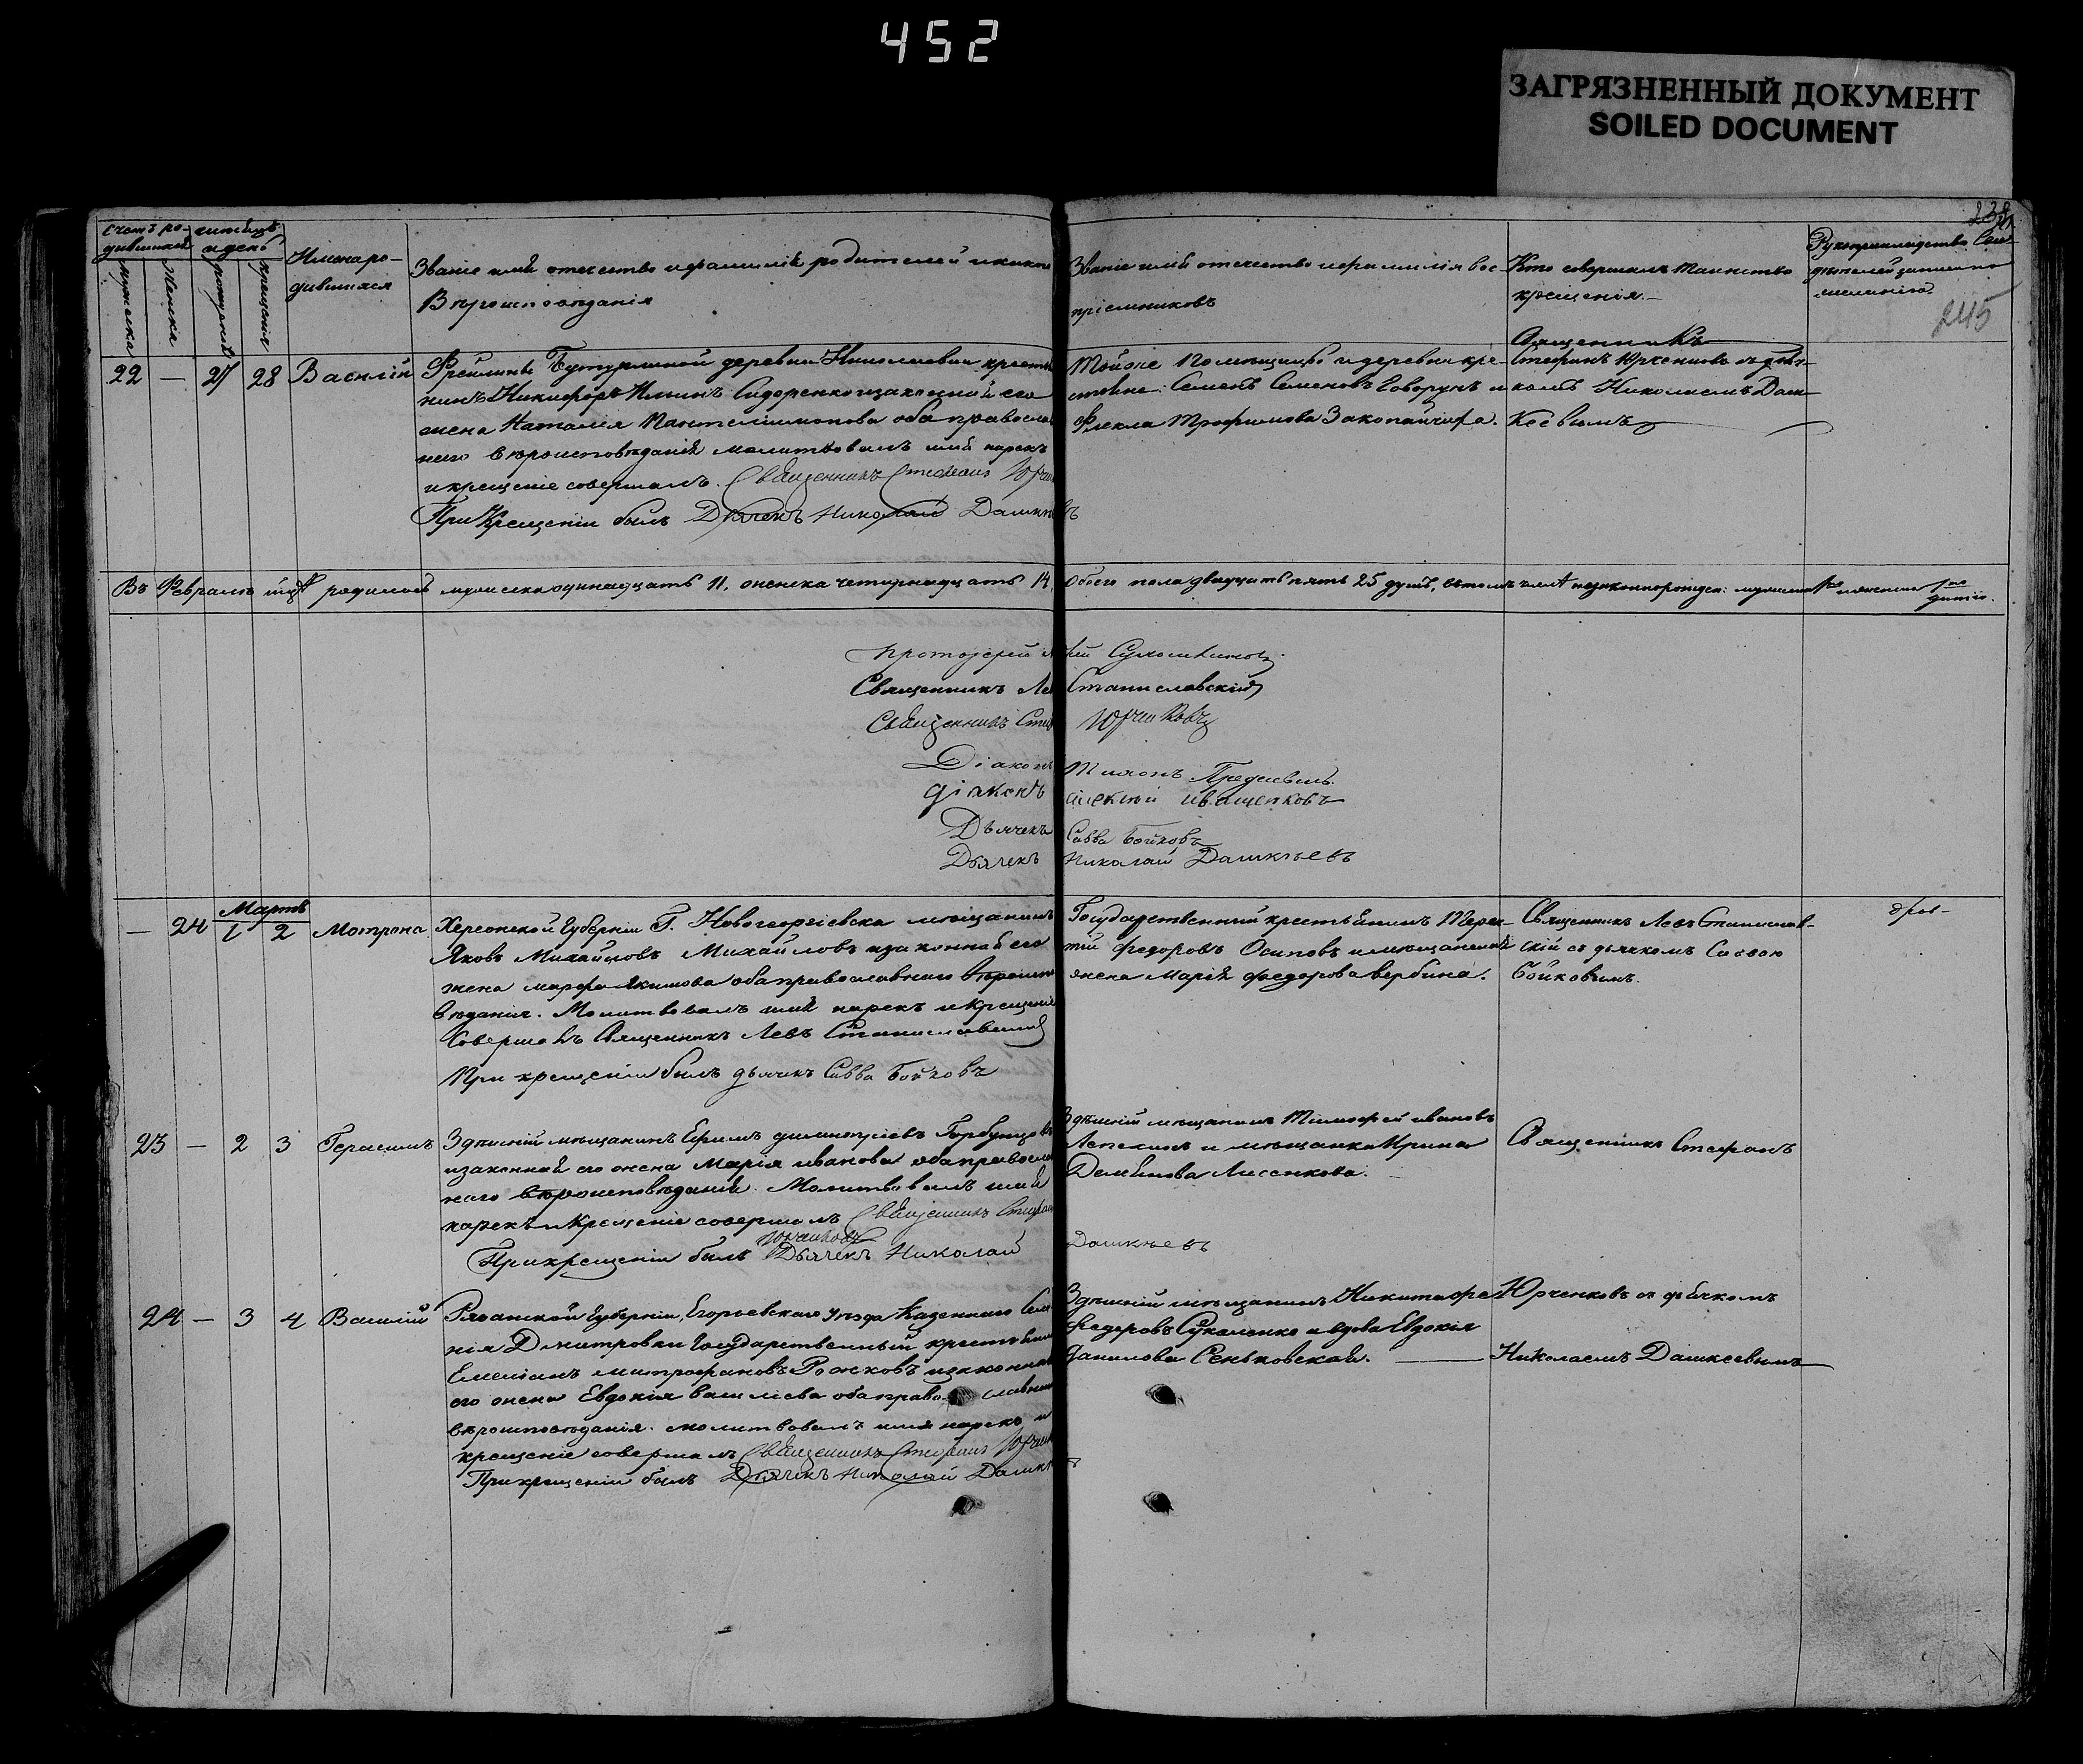 452
ЗАГРЯЗНЕННЫЙ ДОКУМЕНТ
SOILED DOCUMENT
245
Счетъ ро-
дившихся
мужеска
женска
и день
рожденія
крещенія
Имена ро-
дившихся
Званіе имя отечество и фамилія родителей и какого
Вѣроисповѣданія
Званіе имя отечество и фамилія вос-
пріемниковъ
Кто совершалъ таинство
крещенія
Рукоприкладство Сви-
дѣтелей записи по
желанію
22 — 27 28 Василій
Фрейлины Бутурлиной деревни Николаевки крестья
нинъ Никифоръ Ильинъ Сидоренко и законная его
жена Наталія Пантелимонова оба православ
наго вѣроисповѣданія молитвовалъ имя нарекъ
и крещеніе совершалъ Священникъ Стефанъ Юрчен
При Крещеніи былъ Дьячекъ Николай Дашкѣевъ
Тойже Помѣщицы и деревни кре-
стьяне: Семенъ Семеновъ Говорунъ и
Фекла Трофимова Закопайчиха.
Священникъ
Стефанъ Юрченковъ съ дьяч-
комъ Николаемъ Даш-
кеевымъ
Въ Февралѣ родилось мужеска одинадцать 11, женска четырнадцать 14, Обоего пола двадцать пять 25 душъ, въ томъ числѣ незаконнорожден:
Протоіерей Сухомлиновъ
Священникъ Левъ Станиславскій
Священникъ Стеф Юрченковъ
Діаконъ
Діаконъ Алексѣй Иващенковъ
Дьячекъ Савва Бойковъ
Дьячекъ Николай Дашкѣевъ
Мартъ
— 24 1 2 Мотрона
Херсонской Губерніи Г. Новогеоргіевска мѣщанинъ
Яковъ Михайловъ Михайловъ и законная его
жена Марфа Якимова оба православнаго вѣроиспо
вѣданія. Молитвовалъ имя нарекъ и Крещеніе
Совершалъ Священникъ Левъ Станиславскій
При крещеніи былъ дьячекъ Савва Бойковъ
Государственный крестьянинъ Терен-
тій Федоровъ Осиповъ и мѣщанская
жена Марія Федорова Вербина.
Священникъ Левъ Станислав-
скій съ дьячкомъ Саввою
Бойковымъ.
23 — 2 3 Герасимъ
Здѣшній мѣщанинъ Ефимъ Димитріевъ Горбунцовъ
и законная его жена Марія Иванова оба православ
наго вѣроисповѣданія. Молитвовалъ имя
нарекъ и Крещеніе совершалъ Священникъ Стефан
Юрченковъ
При крещеніи былъ Дьячекъ Николай Дашкѣевъ
Здѣшній мѣщанинъ Тимофей Ивановъ
Лепехинъ и мѣщанка Ирина
Демьянова Лисенкова.
Священникъ Стефанъ
24 — 3 4 Василій
Рязанской Губерніи, Егорьевскаго уѣзда Казеннаго Селе
нія Дмитровки Государственный крестьянинъ
Емеліанъ Митрофановъ Рожковъ и законная
его жена Евдокія Василіева оба православнаго
вѣроисповѣданія. молитвовалъ имя нарекъ и
крещеніе совершалъ Священникъ Стефанъ Юрчен
При крещеніи былъ Дьячекъ Николай Дашкѣ
Здѣшній мѣщанинъ Никита
Федоровъ Сукаленко и вдова Евдокія
Данилова Сеньковская.
Юрченковъ съ дьячкомъ
Николаемъ Дашкеевымъ